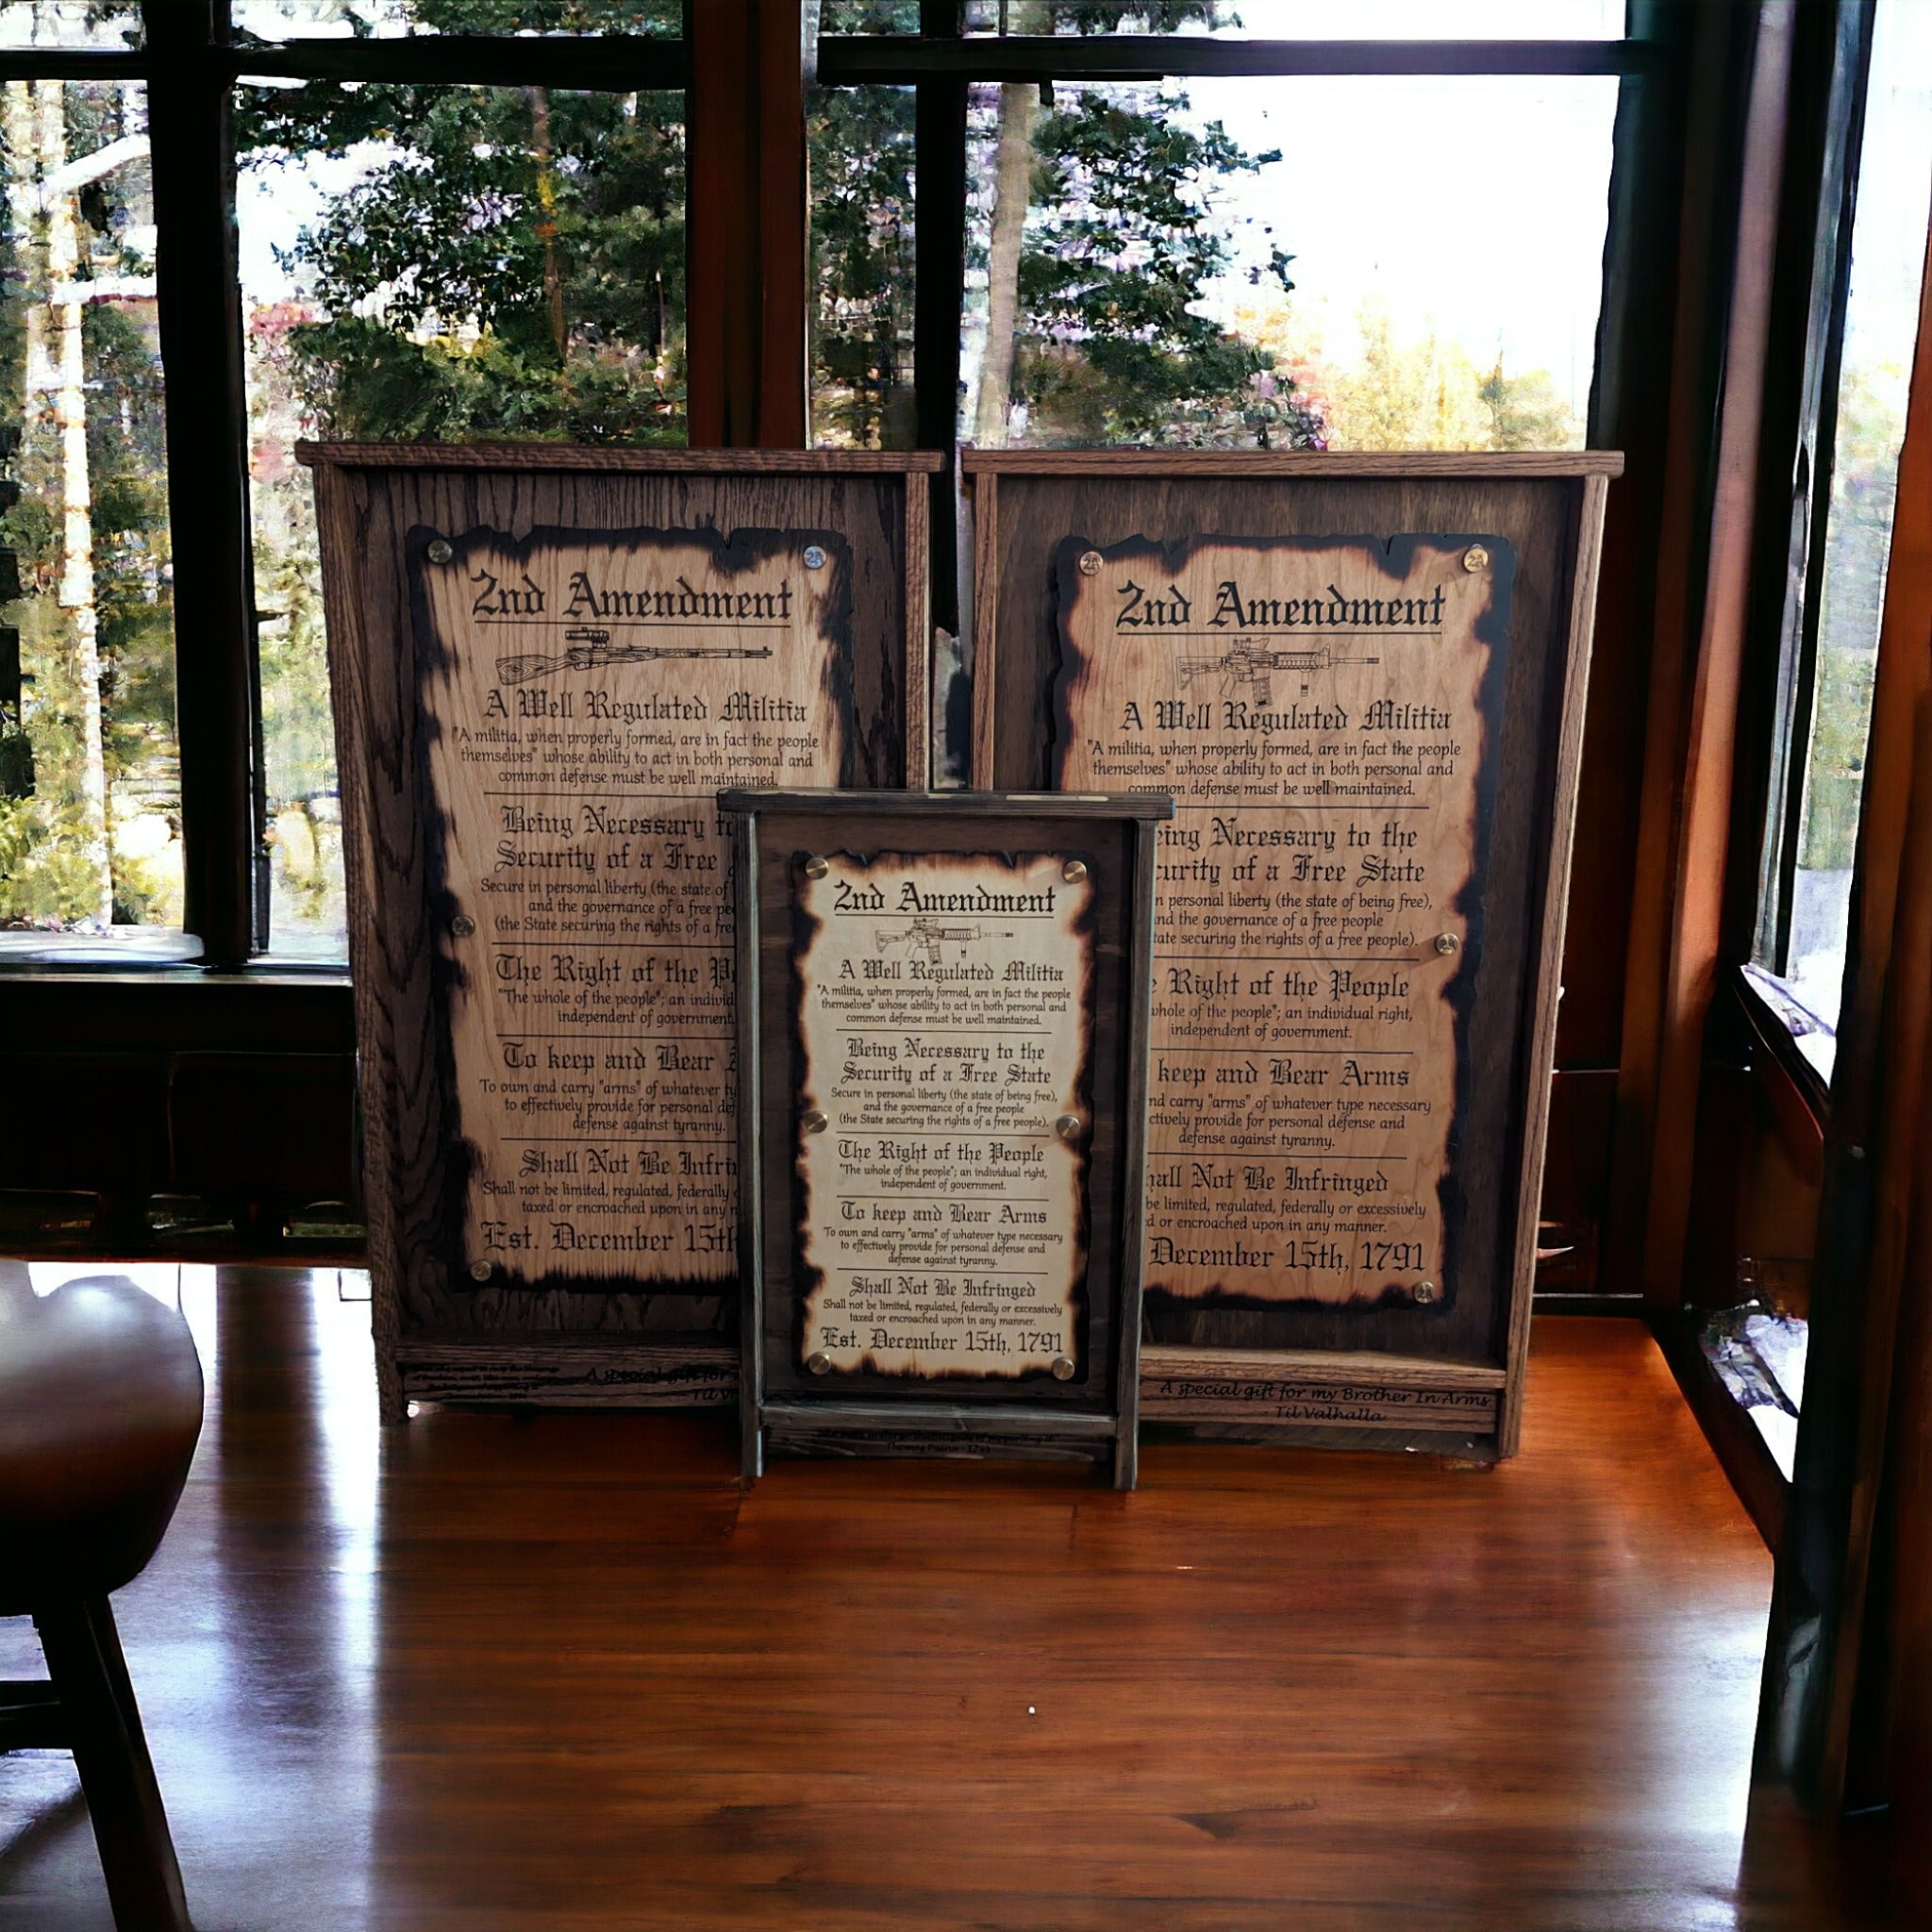 2nd Amendment
A Well Regulated Militia
"A militia, when properly formed, are in fact the people
themselves" whose ability to act in both personal and
common defense must be well maintained.
Being Necessary
Security of a Free
Secure in personal liberty (the state of
and the governance of a free
(the State securing the rights of a
The Right of the
"The whole of the people"; an
independent of government.
To keep and Bear
To own and carry "arms" of whatever
to effectively provide for personal
defense against tyranny.
Shall Not Be
Shall not be limited, regulated, federally
taxed or encroached upon in any
Est. December 15th
A special gift for
Til
2A
2A
2nd Amendment
A Well Regulated Militia
"A militia, when properly formed, are in fact the people
themselves" whose ability to act in both personal and
common defense must be well maintained.
Being Necessary to the
Security of a Free State
Secure in personal liberty (the state of being free),
and the governance of a free people
(the State securing the rights of a free people).
The Right of the People
"The whole of the people"; an individual right,
independent of government.
To keep and Bear Arms
To own and carry "arms" of whatever type necessary
to effectively provide for personal defense and
defense against tyranny.
Shall Not Be Infringed
Shall not be limited, regulated, federally or excessively
taxed or encroached upon in any manner.
Est. December 15th, 1791
Thomas Paine - 1791
2A
2A
2nd Amendment
A Well Regulated Militia
"A militia, when properly formed, are in fact the people
themselves" whose ability to act in both personal and
common defense must be well maintained.
Necessary to the
of a Free State
personal liberty (the state of being free),
the governance of a free people
securing the rights of a free people).
2A
Right of the People
of the people"; an individual right,
independent of government.
keep and Bear Arms
carry "arms" of whatever type necessary
provide for personal defense and
defense against tyranny.
Not Be Infringed
be limited, regulated, federally or excessively
or encroached upon in any manner.
December 15th, 1791
2A
A special gift for my Brother In Arms
- Til Valhalla